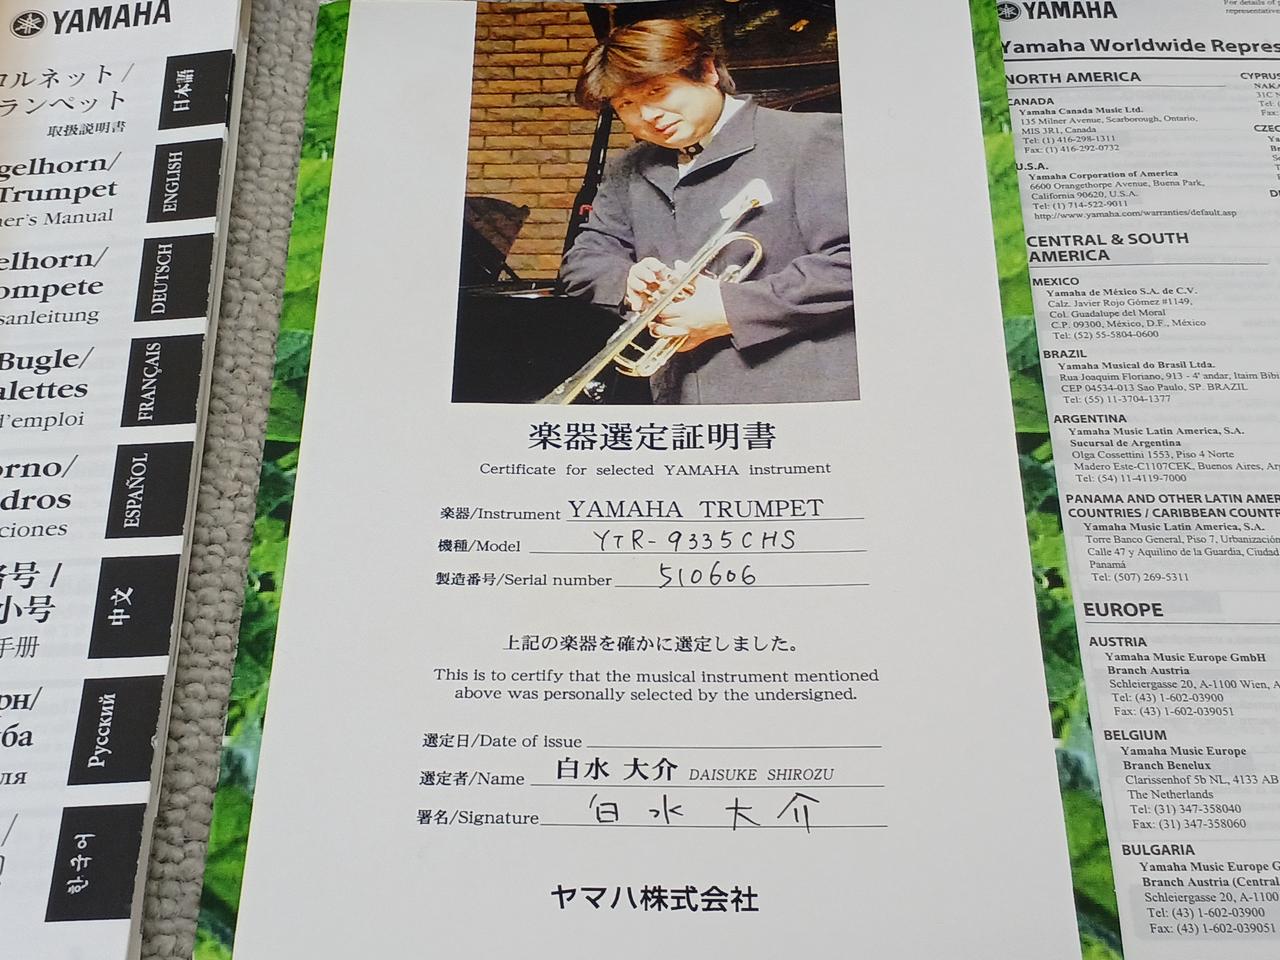 YAMAHA
コルネット /
ランペット
取扱説明書
gelhorn/
Trumpet
ner's Manual
elhorn/
ompete
sanleitung
Bugle/
alettes
d'emploi
orno/
dros
ciones
号 /
小号
手册
рн/
ба
ля
/
日本語
ENGLISH
DEUTSCH
FRANÇAIS
ESPAÑOL
中文
Русский
한국어
楽器選定証明書
Certificate for selected YAMAHA instrument
楽器/Instrument YAMAHA TRUMPET
機種/Model YTR-9335CHS
製造番号/Serial number 510606
上記の楽器を確かに選定しました。
This is to certify that the musical instrument mentioned
above was personally selected by the undersigned.
選定日/Date of issue
選定者/Name 白水 大介 DAISUKE SHIROZU
署名/Signature 白水大介
ヤマハ株式会社
YAMAHA
For details of
representative
Yamaha Worldwide Repres
NORTH AMERICA
CANADA
Yamaha Canada Music Ltd.
135 Milner Avenue, Scarborough, Ontario,
M1S 3R1, Canada
Tel: (1) 416-298-1311
Fax: (1) 416-292-0732
U.S.A.
Yamaha Corporation of America
6600 Orangethorpe Avenue, Buena Park,
California 90620, U.S.A.
Tel: (1) 714-522-9011
http://www.yamaha.com/warranties/default.asp
CENTRAL & SOUTH
AMERICA
MEXICO
Yamaha de México S.A. de C.V.
Calz. Javier Rojo Gómez #1149,
Col. Guadalupe del Moral
C.P. 09300, México, D.F., México
Tel: (52) 55-5804-0600
BRAZIL
Yamaha Musical do Brasil Ltda.
Rua Joaquim Floriano, 913 - 4' andar, Itaim Bibi
CEP 04534-013 Sao Paulo, SP. BRAZIL
Tel: (55) 11-3704-1377
ARGENTINA
Yamaha Music Latin America, S.A.
Sucursal de Argentina
Olga Cossettini 1553, Piso 4 Norte
Madero Este-C1107CEK, Buenos Aires, Ar
Tel: (54) 11-4119-7000
PANAMA AND OTHER LATIN AMER
COUNTRIES / CARIBBEAN COUNTR
Yamaha Music Latin America, S.A.
Torre Banco General, Piso 7, Urbanización
Calle 47 y Aquilino de la Guardia, Ciudad
Panamá
Tel: (507) 269-5311
EUROPE
AUSTRIA
Yamaha Music Europe GmbH
Branch Austria
Schleiergasse 20, A-1100 Wien, A
Tel: (43) 1-602-03900
Fax: (43) 1-602-039051
BELGIUM
Yamaha Music Europe
Branch Benelux
Clarissenhof 5b NL, 4133 AB
The Netherlands
Tel: (31) 347-358040
Fax: (31) 347-358060
BULGARIA
Yamaha Music Europe G
Branch Austria (Central
Schleiergasse 20, A-1100
Tel: (43) 1-602-03900
Fax: (43) 1-602-039051
CYPRUS
NAKA
31C N
Tel: (
Fax:
CZEC
Ya
Br